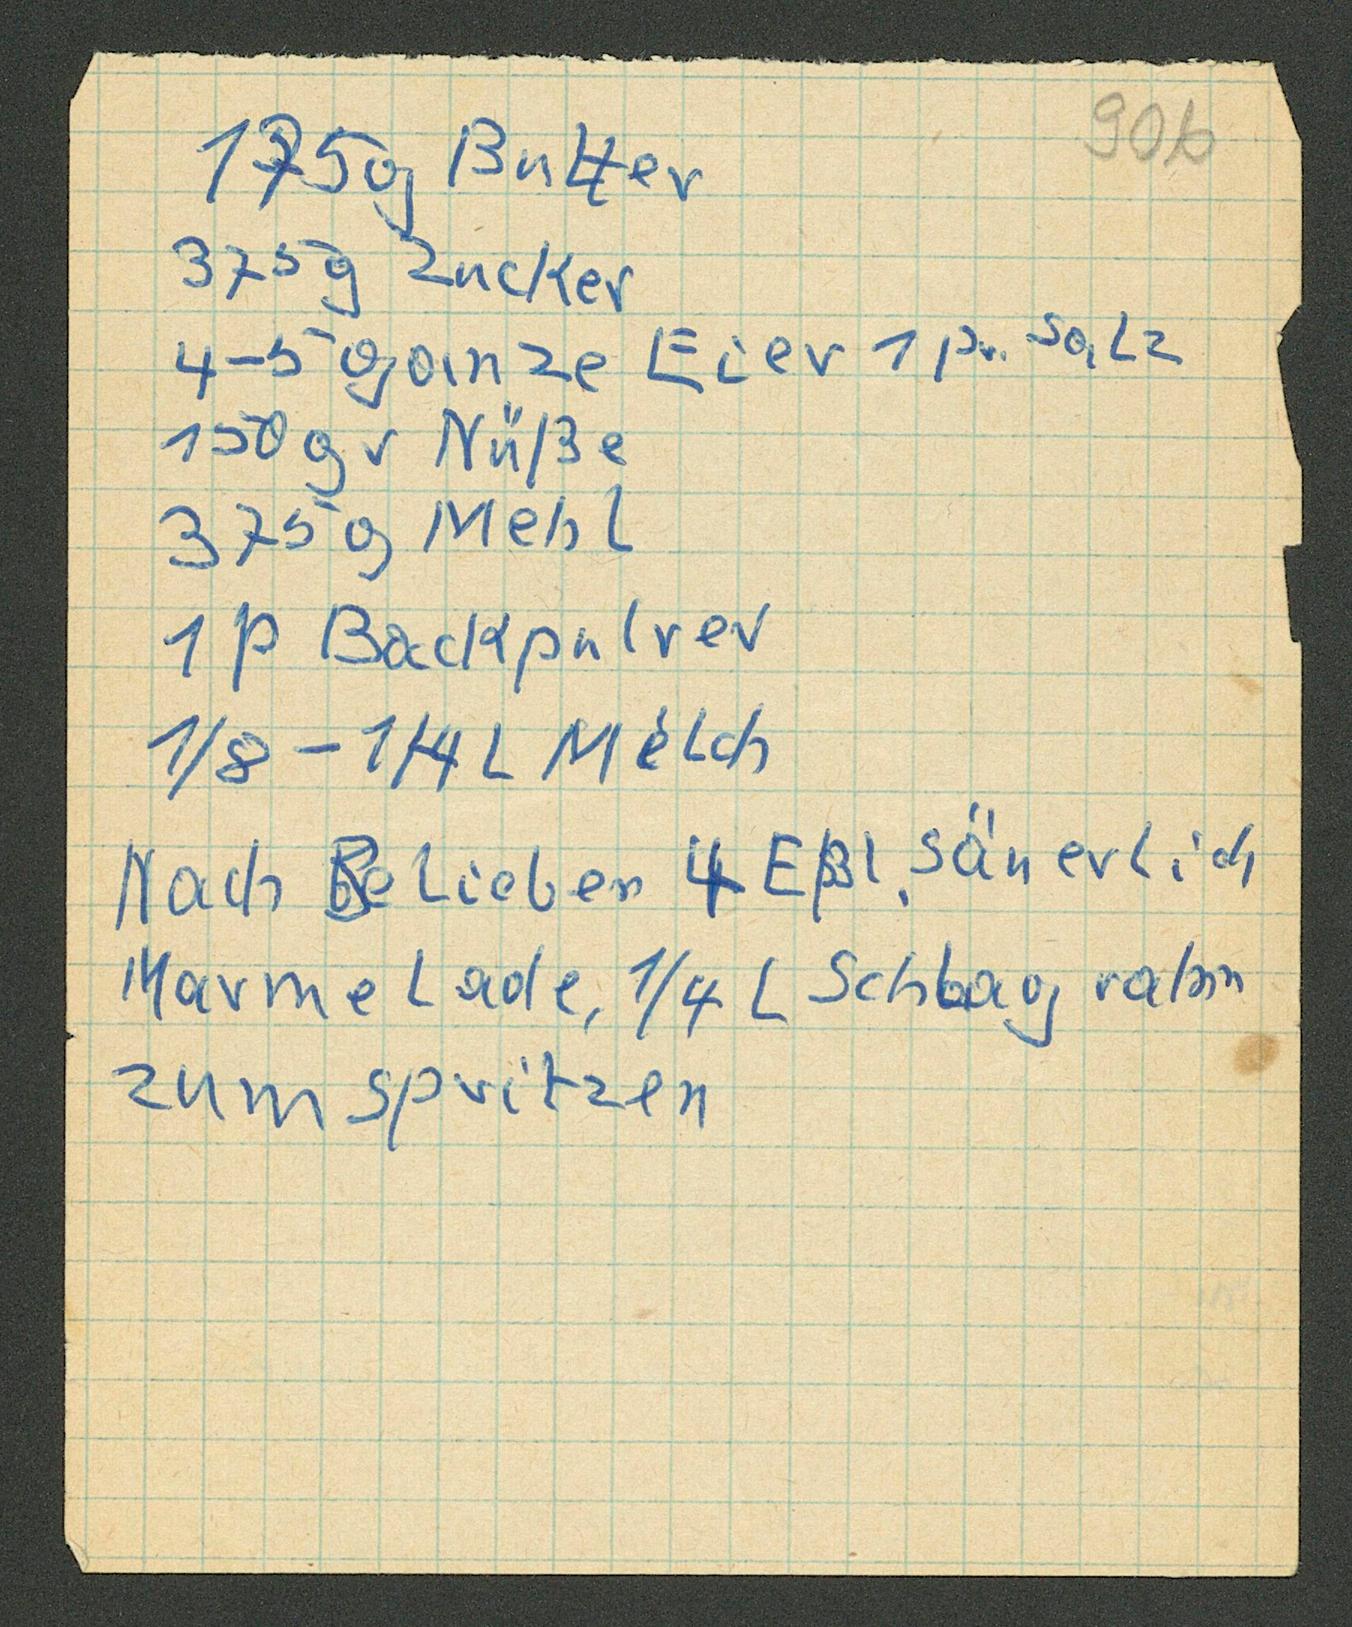 90b
175g Butter
375g Zucker
4-5 ganze Eier 1 pr. Salz
150gr Nüße
375g Mehl
1 P Backpulver
1/8 - 1/4 L Milch
Nach Belieben 4 Eßl. säuerlich
Marmelade, 1/4 L Schlagrahm
zum spritzen